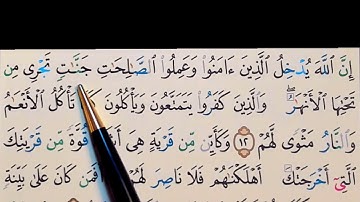 إِنَّ ٱللَّهَ يُدْخِلُ ٱلَّذِينَ ءَامَنُوا۟ وَعَمِلُوا۟ ٱلصَّـٰلِحَـٰتِ جَنَّـٰتٍ تَجْرِى مِن
تَحْتِهَا ٱلْأَنْهَـٰرُ ۖ وَٱلَّذِينَ كَفَرُوا۟ يَتَمَتَّعُونَ وَيَأْكُلُونَ تَأْكُلُ ٱلْأَنْعَـٰمُ
وَٱلنَّارُ مَثْوًى لَّهُمْ ١٢ وَكَأَيِّن مِّن قَرْيَةٍ هِىَ قُوَّةً مِّن قَرْيَتِكَ
ٱلَّتِىٓ أَخْرَجَتْكَ أَهْلَكْنَـٰهُمْ فَلَا نَاصِرَ لَهُمْ أَفَمَن كَانَ عَلَىٰ بَيِّنَةٍ